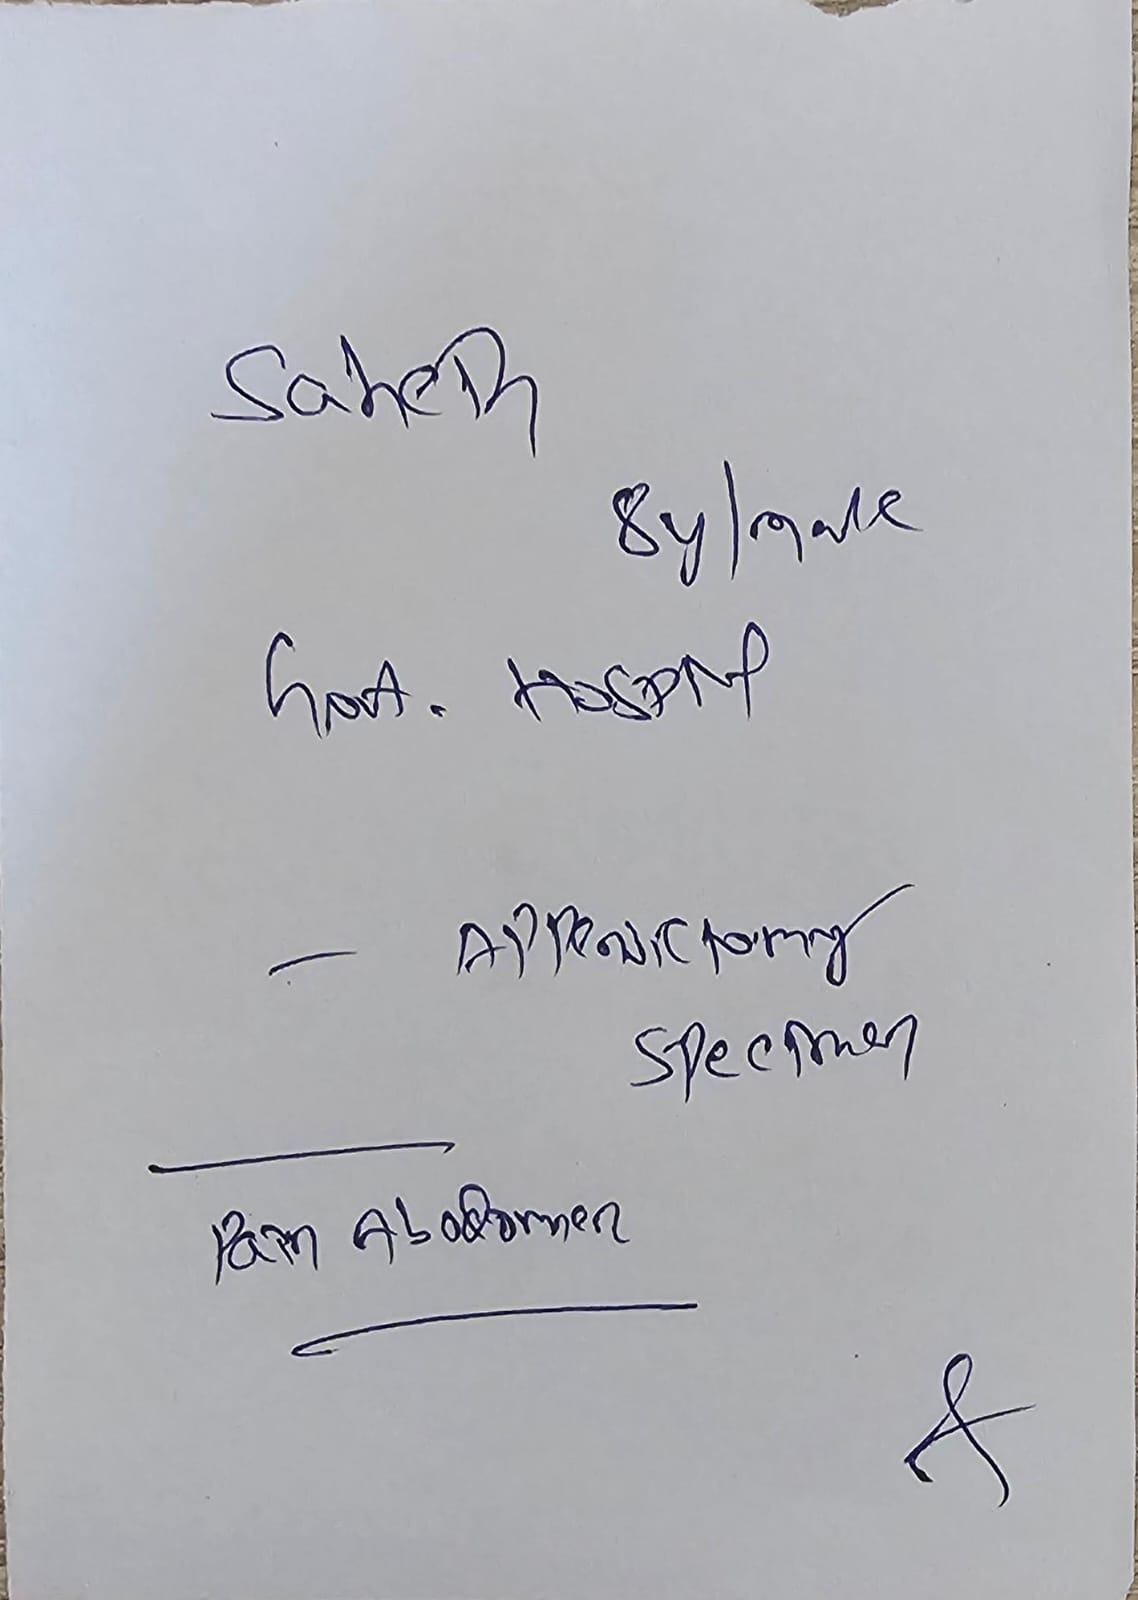 8y/male
Govt. Hospital
- Appendictomy
Specimen
Pain Abdomen